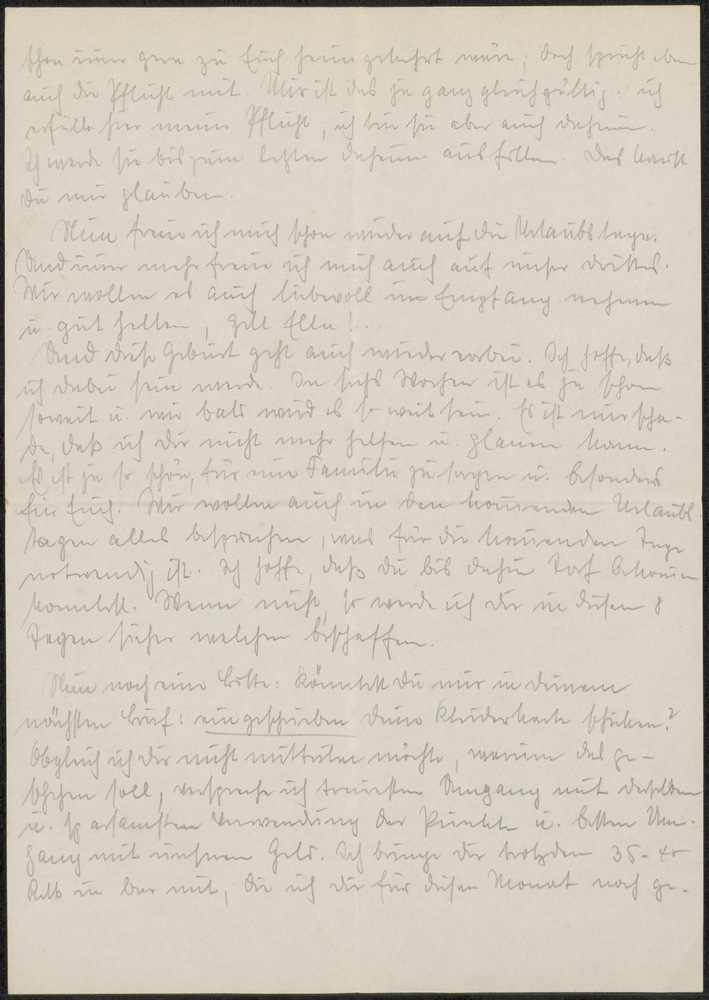 schon immer gern zu Euch heimgekehrt wäre; doch spricht eben
auch die Pflicht mit. Mir ist das ja ganz gleichgültig: ich
erfülle hier meine Pflicht; ich bin sie aber auch daheim.
Ich werde sie bis zum letzten daheim ausfüllen. Das kannst
Du mir glauben.
Nun freue ich mich schon wieder auf die Urlaubstage.
Und immer mehr freue ich mich auch auf unser drittes.
Wir wollen es auch liebevoll in Empfang nehmen
u. gut halten, gell Ella!..
Und diese Geburt geht auch wieder vorbei. Ich hoffe, daß
ich dabei sein werde. In sechs Wochen ist es ja schon
soweit u. wie bald wird es so weit sein. Es ist nur scha-
de, daß ich Dir nicht mehr helfen u. planen kann.
Es ist ja so schön, für eine Familie zu sorgen u. besonders
für Euch. Wir wollen auch in den kommenden Urlaubs
tagen alles besprechen, was für die kommenden Tage
notwendig ist. Ich hoffe, daß Du bis dahin Torf bekommen
konntest. Wenn nicht, so werde ich Dir in diesen 8
Tagen sicher welchen beschaffen.
Nun noch eine Bitte: Könntest Du mir in Deinem
nächsten Brief: eingeschrieben Deine Kleiderkarte schicken?
Obgleich ich Dir nicht mitteilen möchte, warum das ge-
schehen soll, verspreche ich treuesten Umgang mit derselben
u. sparsamsten Verwendung der Punkte u. besten Um-
gang mit unserem Geld. Ich bringe Dir trotzdem 35-40
RM in bar mit, die ich Dir für diesen Monat noch ge-